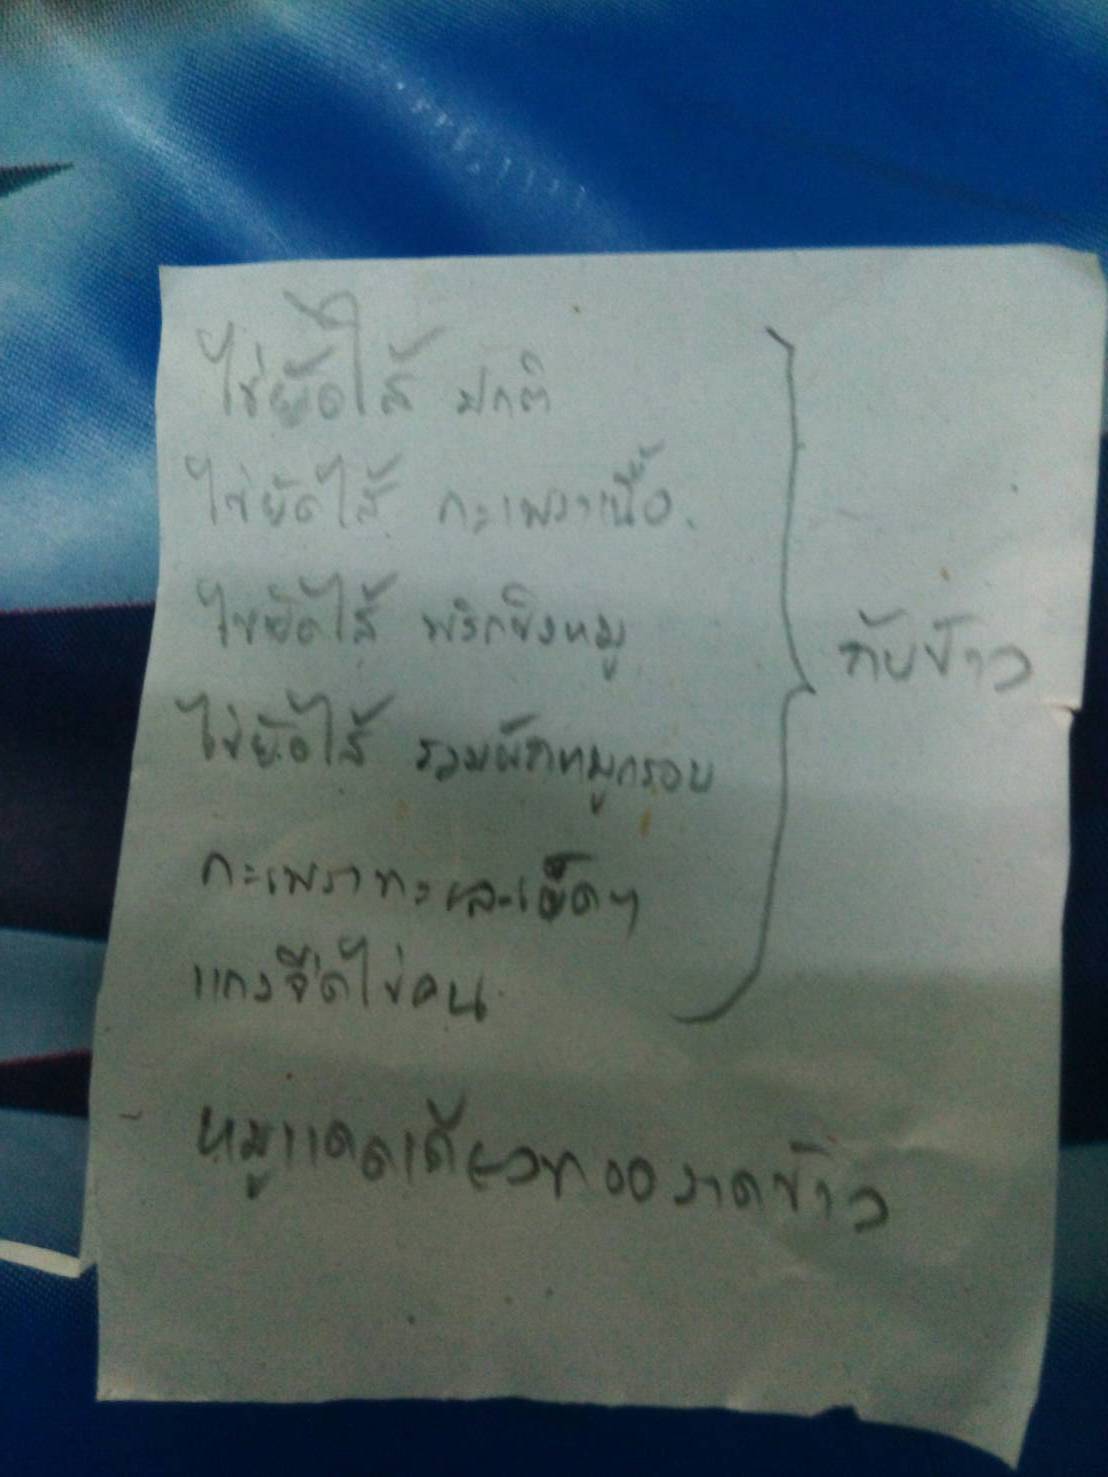 ไข่ยัดไส้ ปกติ
ไข่ยัดไส้ กะเพราเนื้อ.
ไข่ยัดไส้ พริกขิงหมู
ไข่ยัดไส้ รวมผักหมูกรอบ
กะเพราทะเลเผ็ดๆ
แกงจืดไข่คน
กับข้าว
- หมูแดดเดียวทอดราดข้าว